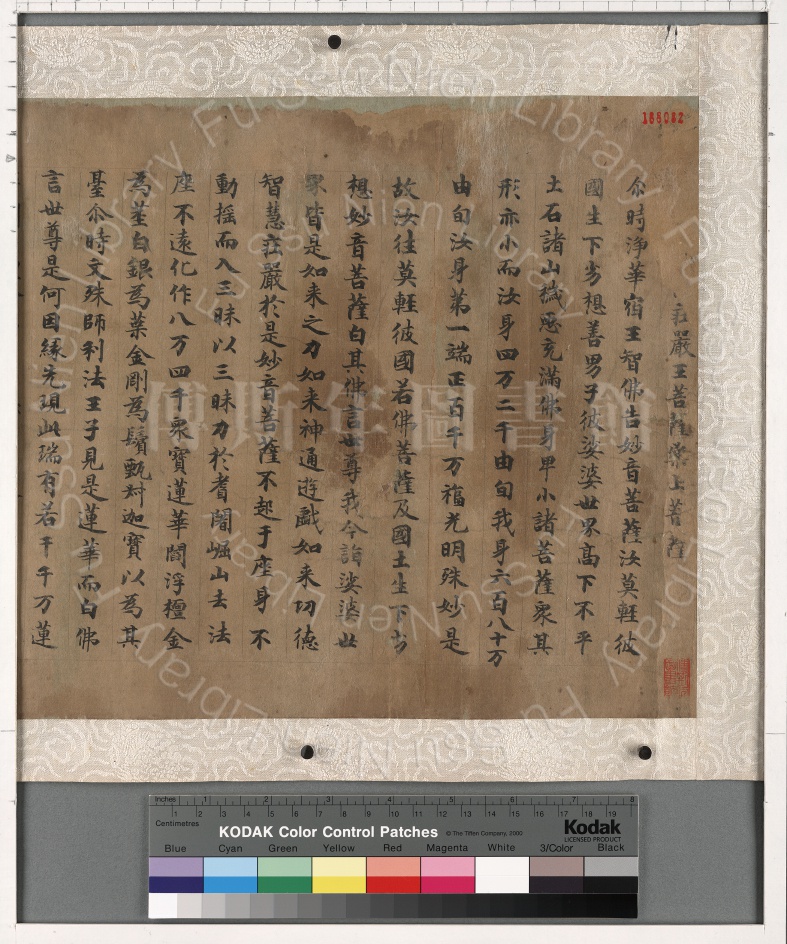 188082
嚴王菩薩藥上菩薩
尒時淨華宿王智佛告妙音菩薩汝莫輕彼
國生下劣想善男子彼娑婆世界髙下不平
土石諸山穢惡充滿佛身卑小諸菩薩衆其
形亦小而汝身四万二千由旬我身六百八十万
由旬汝身第一端正百千万福光明殊妙是
故汝往莫輕彼國若佛菩薩及國土生下劣
想妙音菩薩白其佛言世尊我今詣娑婆世
界皆是如来之力如来神通遊戲如来功德
智慧莊嚴於是妙音菩薩不起于座身不
動揺而入三昧以三昧力於耆闍崛山去法
座不遠化作八万四千衆寶蓮華閻浮檀金
為莖白銀為葉金剛為鬚甄叔迦寶以為其
臺尒時文殊師利法王子見是蓮華而白佛
言世尊是何因縁先現此瑞有若干千万蓮
傅斯年圖書館
Fu Ssu Nien Library
Inches 1 2 3 4 5 6 7 8
Centimetres 1 2 3 4 5 6 7 8 9 10 11 12 13 14 15 16 17 18 19
KODAK Color Control Patches © The Tiffen Company, 2000 Kodak
LICENSED PRODUCT
Blue Cyan Green Yellow Red Magenta White 3/Color Black